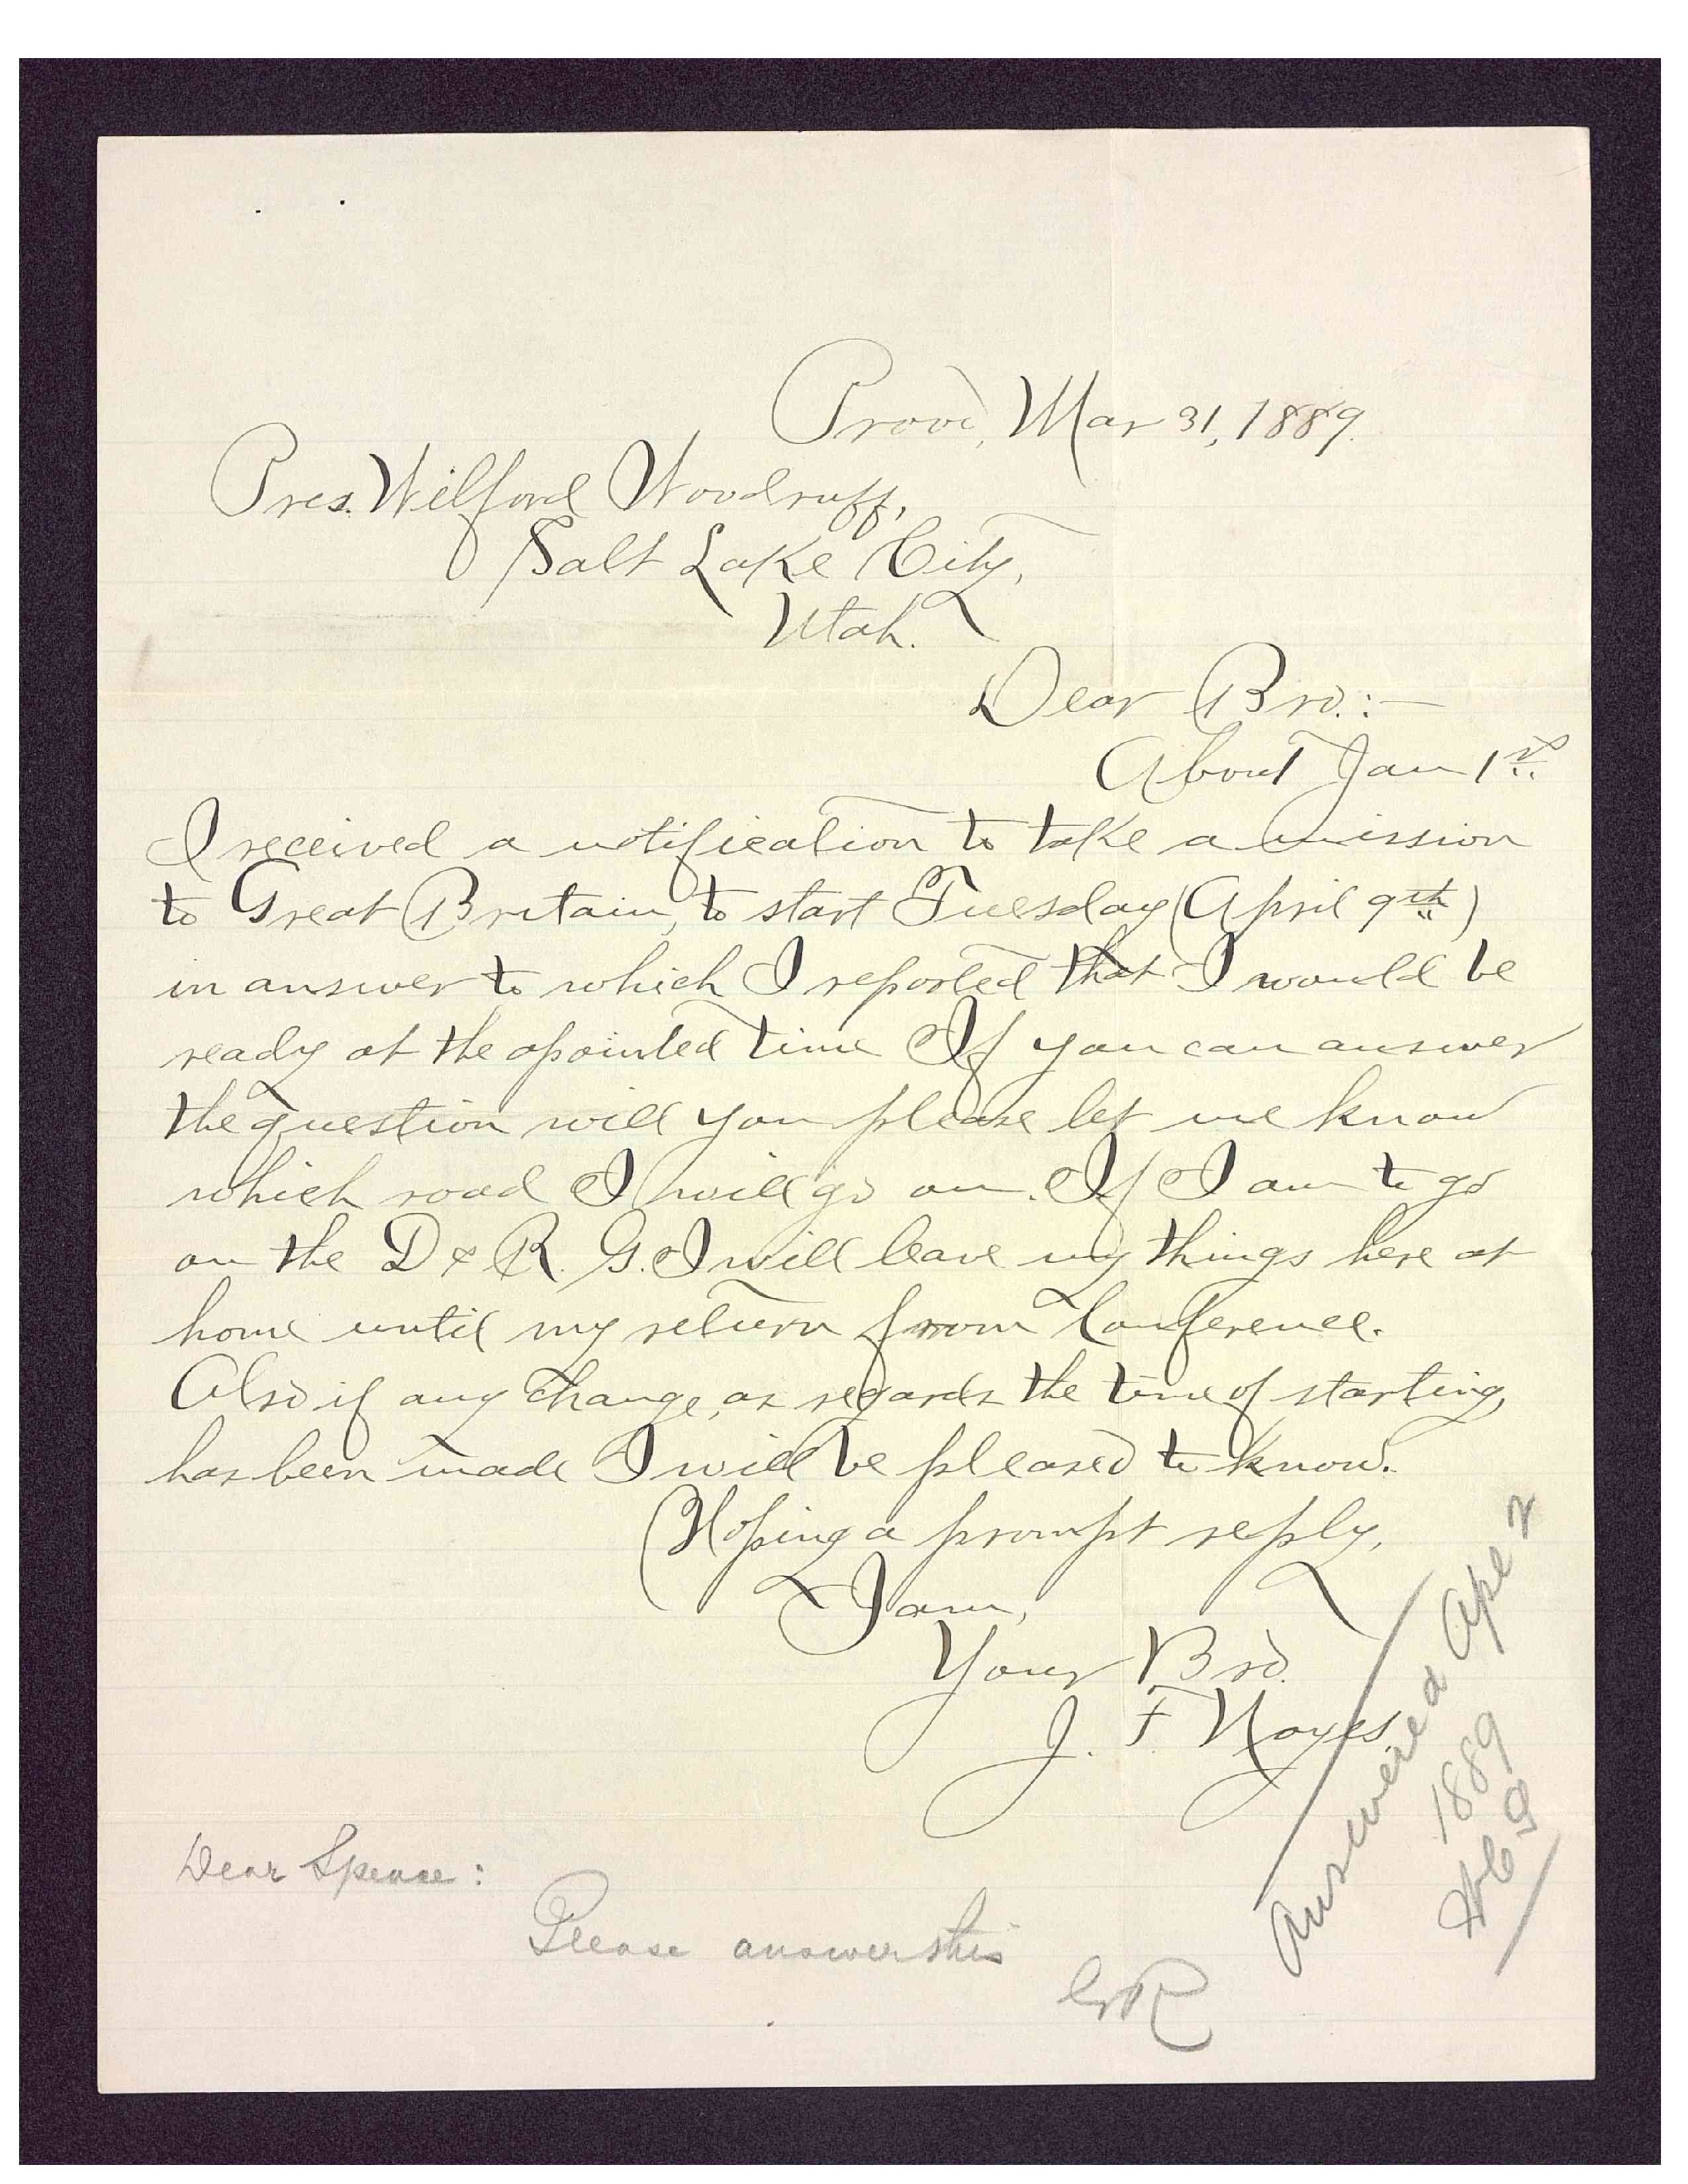 Provo, Mar 31, 1889.
Pres. Wilford Woodruff,
Salt Lake City,
Utah.
Dear Bro.:—
About Jan 1st
I received a notification to take a mission
to Great Britain, to start Tuesday (April 9th)
in answer to which I reported that I would be
ready at the apointed time If you can answer
the question will you please let me know
which road I will go on. If I am to go
on the D & R. G. I will leave my things here at
home until my return from Conference.
Also if any change, as regards the time of starting,
has been made I will be pleased to know.
Hoping a prompt reply,
I am,
Your Bro.
J. F. Noyes.
Answered Apl 2
1889
Dear Spence:
Please answer this
GR